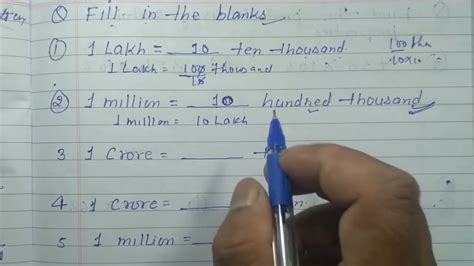 Q Fill in the blanks
1 1 Lakh = 10 ten thousand
1 Lakh = 100 thousand
10
2 1 million = 10 hundred thousand
1 million = 10 Lakh
3 1 Crore =
4 1 Crore =
5 1 million =